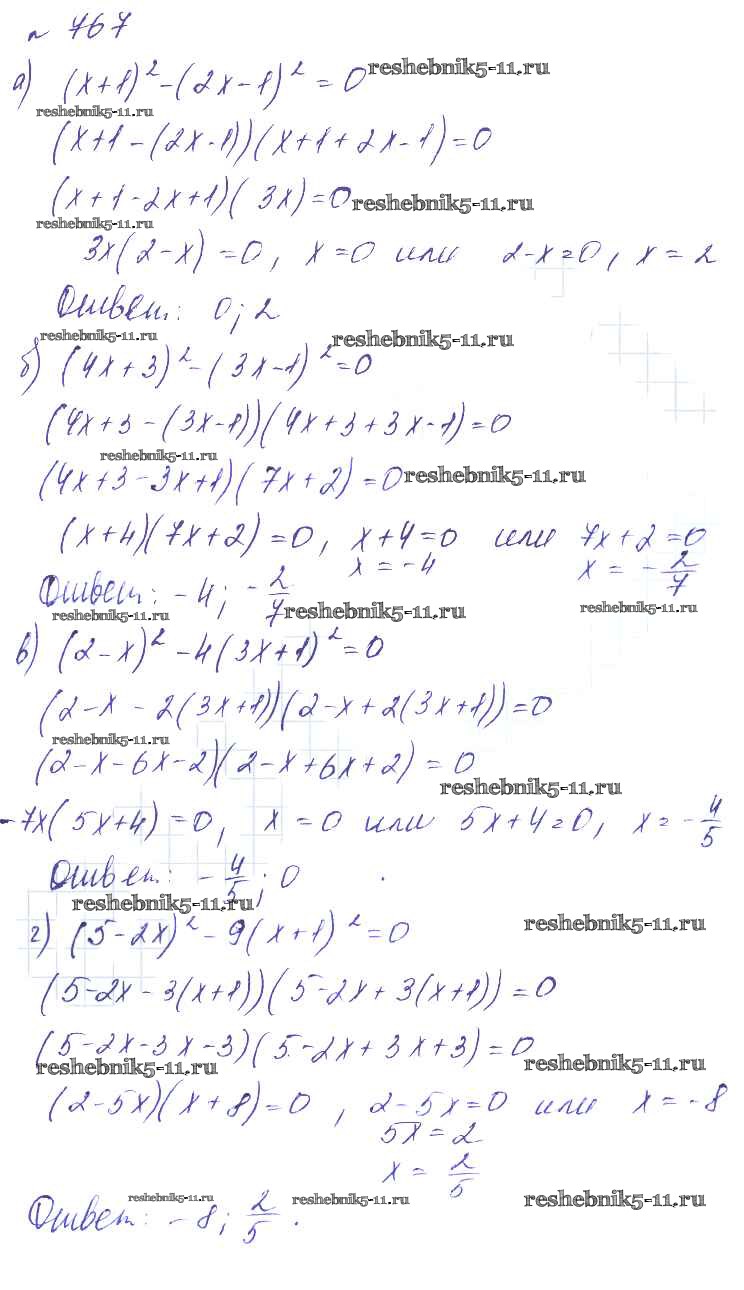 № 767
а) (x+1)² - (2x-1)² = 0 reshebnik5-11.ru
reshebnik5-11.ru
(x+1 - (2x-1))(x+1+2x-1)=0
(x+1-2x+1)(3x)=0 reshebnik5-11.ru
reshebnik5-11.ru
3x(2-x)=0, x=0 или 2-x=0, x=2
Ответ: 0; 2
reshebnik5-11.ru reshebnik5-11.ru
б) (4x+3)² - (3x-1)² = 0
(4x+3-(3x-1))(4x+3+3x-1)=0
reshebnik5-11.ru
(4x+3-3x+1)(7x+2)=0 reshebnik5-11.ru
(x+4)(7x+2)=0, x+4=0 или 7x+2=0
x = -4 x = -2/7
Ответ: -4; -2/7 reshebnik5-11.ru reshebnik5-11.ru
reshebnik5-11.ru
в) (2-x)² - 4(3x+1)² = 0
(2-x - 2(3x+1))(2-x+2(3x+1))=0
reshebnik5-11.ru
(2-x-6x-2)(2-x+6x+2) = 0
reshebnik5-11.ru
-7x(5x+4)=0, x=0 или 5x+4=0, x=-4/5
Ответ: -4/5; 0 .
reshebnik5-11.ru reshebnik5-11.ru
г) (5-2x)² - 9(x+1)² = 0
(5-2x-3(x+1))(5-2x+3(x+1)) = 0
(5-2x-3x-3)(5-2x+3x+3)=0
reshebnik5-11.ru reshebnik5-11.ru
(2-5x)(x+8)=0, 2-5x=0 или x=-8
5x=2
x = 2/5
reshebnik5-11.ru reshebnik5-11.ru reshebnik5-11.ru
Ответ: -8; 2/5.